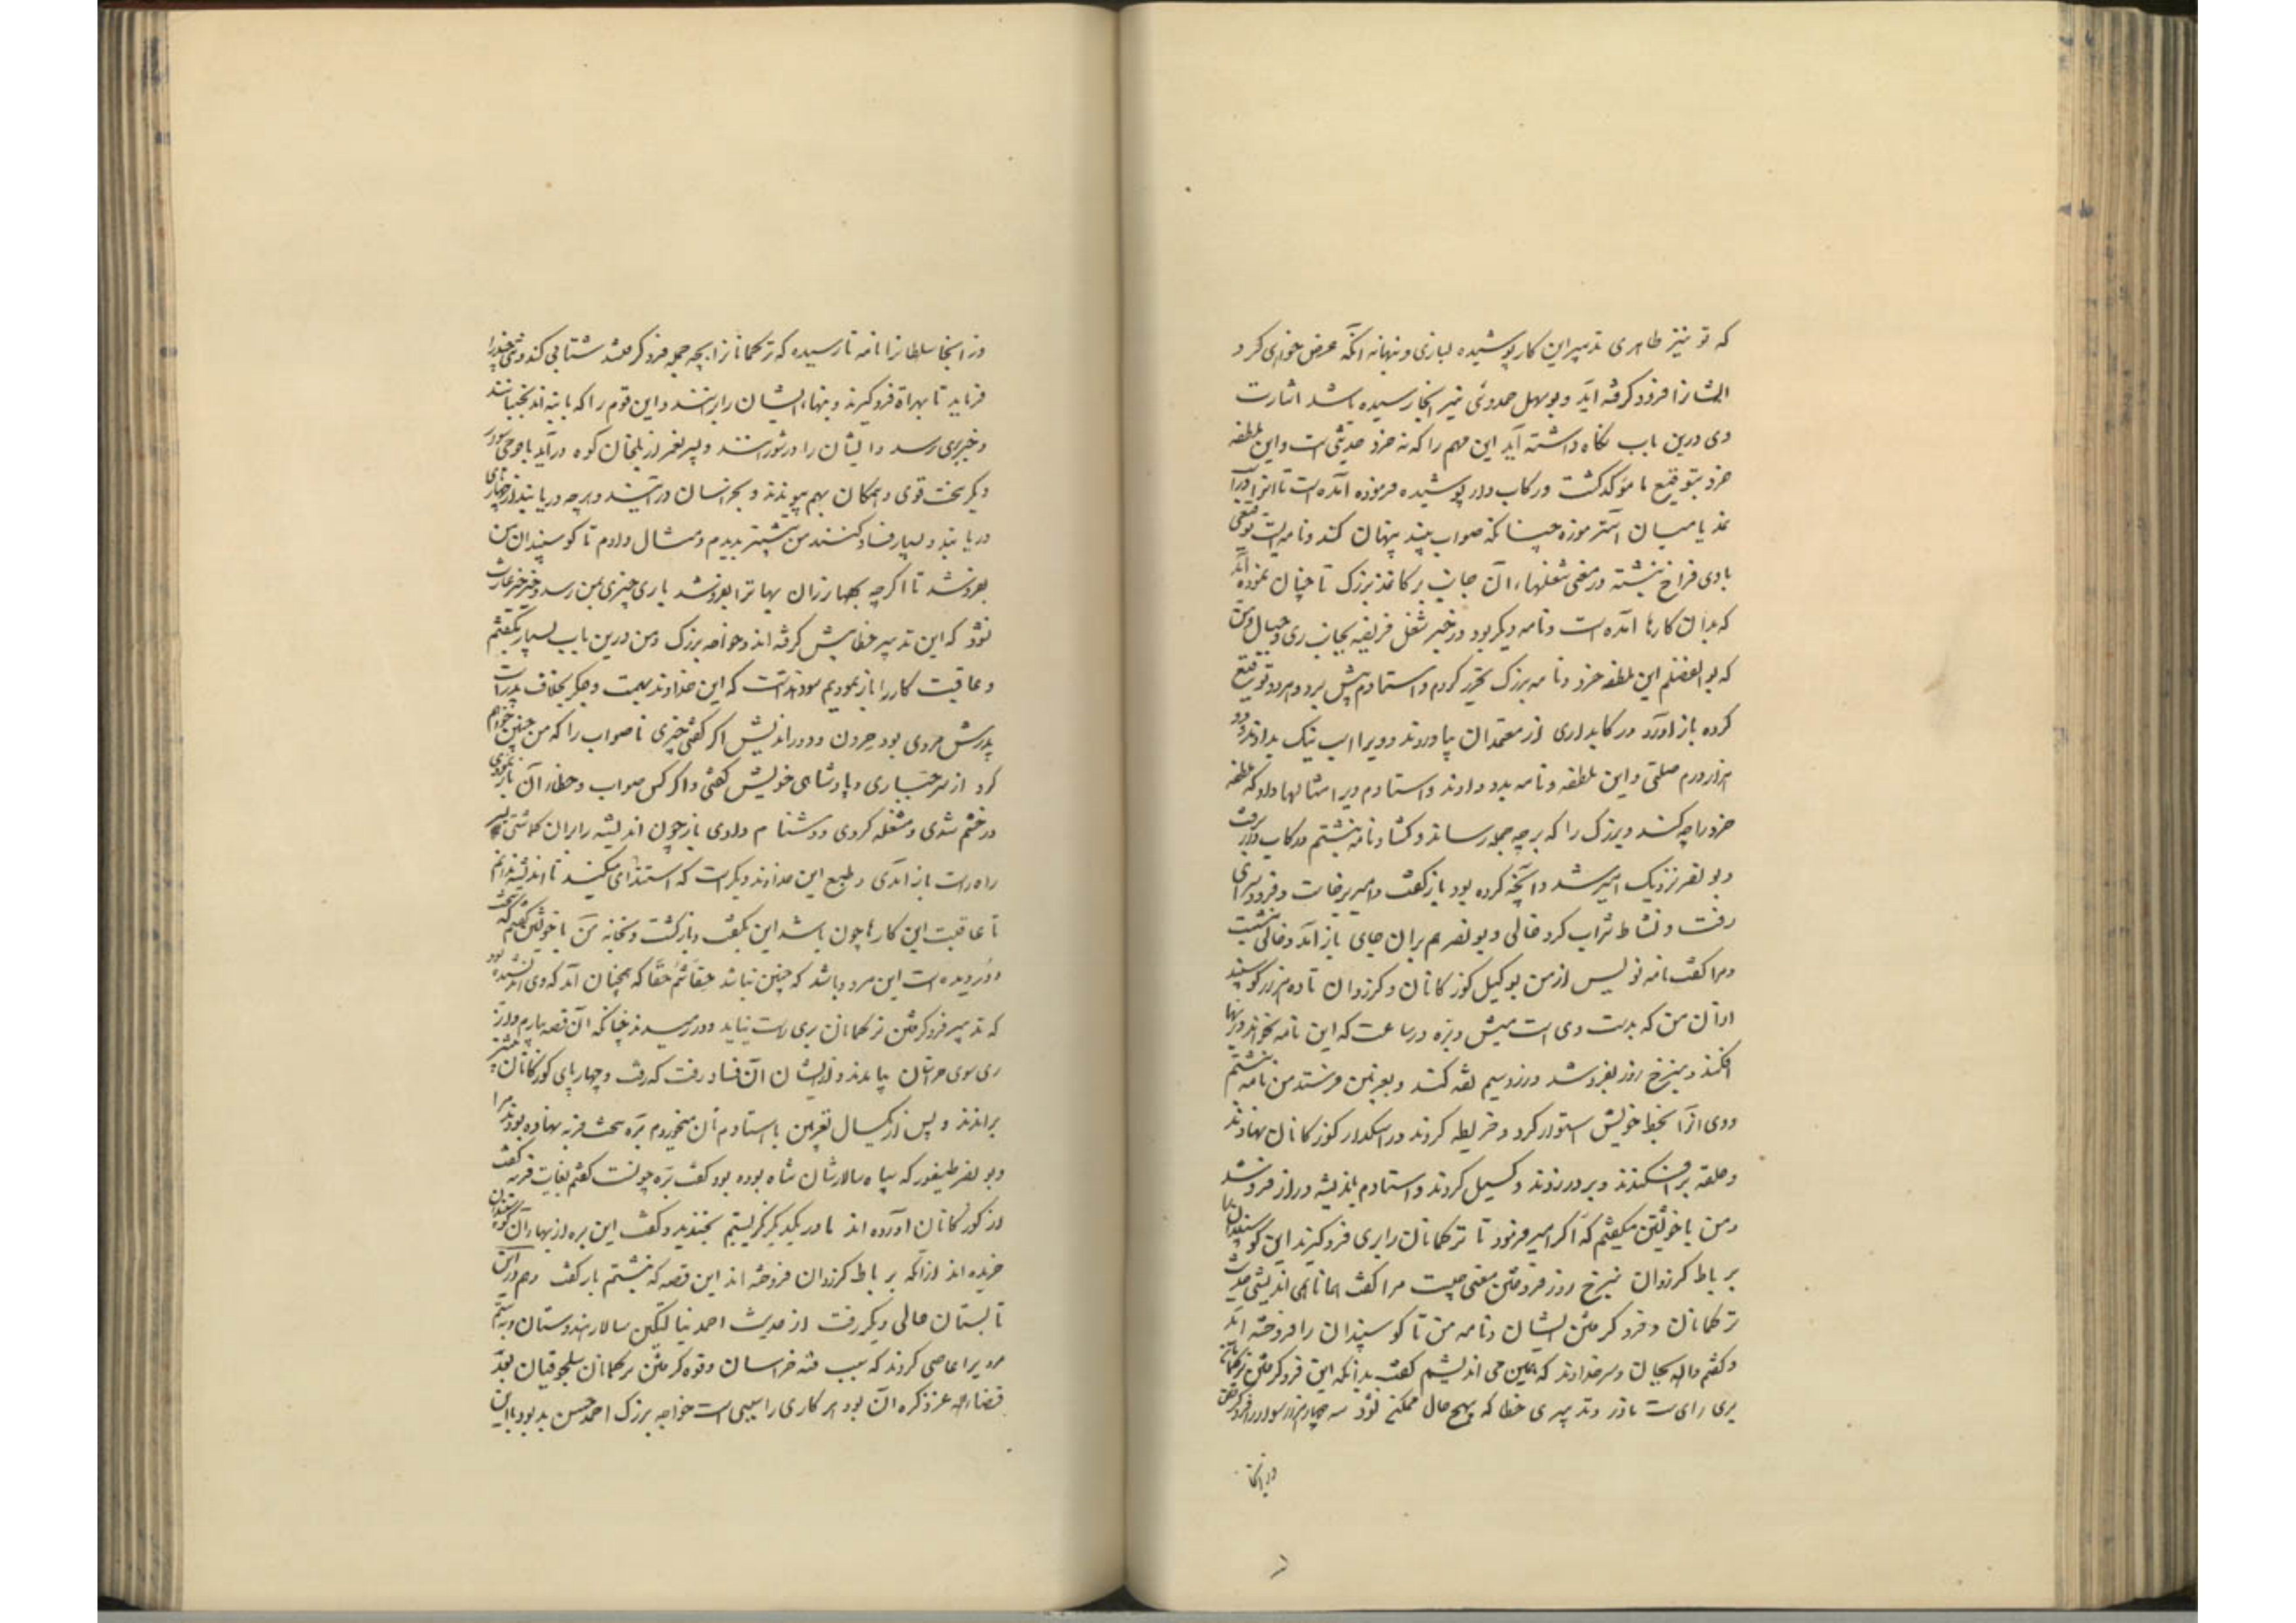 که تو نیز طاهری تدبیر این کار پوشیده بسازی و نبهانه آنکه عرض خواهی کرد
ایشانرا فرود گرفته آید و بوسهل حمدوئی نیز آنجا رسیده باشد اشارت
وی درین باب نگاه داشته آید این مهم را که نه خرد حدیثی است و این ملطفه
خرد بتوقیع ما مؤکد گشت و رکاب دار پوشیده فرموده آمده است تا آنرا در
نمد یا میان آستر موزه چنانکه صواب بیند پنهان کند و نامه ایست توقیعی
با وی فراخ نبشته در معنی شغلهاء آن جانب بر کاغذ بزرگ تا چنان نموده آید
که بدان کارها آمده است و نامه دیگر بود در خبر شغل فریفه بجانب ری و جبال و من
که بوالفضلم این ملطفه خرد و نامه بزرگ تحریر کردم و استادم پیش برد و هر دو توقیع
کرده باز آورد و رکابداری از معتمدان بیاوردند و ویرا اسب نیک بدادند و دو
هزار درم صلتی و این ملطفه و نامه بدو دادند و استادم ویرا مثالها داد که ملطفه
خرد را چه کند و بزرگ را که بر چه جمله رساند و گشاد نامه نبشتم و رکاب دار برفت
و بونصر نزدیک امیر شد و آنچه کرده بود باز گفت و امیر برخاست و فرود سرای
رفت و نشاط شراب کرد خالی و بونصر هم بران جای باز آمد و خالی بنشست
و مرا گفت نامه نویس از من بوکیل گوزکانان و کرزوان تا ده هزار گوسپند
از آن من که بدست وی است میش و بره در ساعت که این نامه بخواند در بها
افکند و بنرخ روز بفروشد و زر و سیم نقد کند و بغزنین فرستد من نامه نبشتم
و وی آنرا بخط خویش استوار کرد و خریطه کردند در اسکدار گوزکانان نهادند
و حلقه برافکندند و بر در زدند و گسیل کردند و استادم باندیشه دراز فروشد
و من با خویشتن میگفتم که اگر امیر فرمود تا ترکمانان را بری فرو گیرند این گوسپندان را
بر باط کرزوان بنرخ روز فروختن معنی چیست مرا گفت همانا همی اندیشی حدیث
ترکمانان و فرو گرفتن ایشان و نامه من تا گوسپندان را فروخته آید
و گفتم والله بجان و سر خداوند که همین می اندیشم گفت بدانکه این فرو گرفتن ترکمانان
بری رای است نادر و تدبیری خطا که بهیچ حال ممکن نشود سه چهار هزار سوار را فرو گرفتن
و از آنجا
وز آنجا سلطانرا نامه نا رسیده که ترکمانانرا بچه جمله فرو گرفتند شتابی کند و تنی چند را
فرماید تا بهراة فرو گیرند و بنهاء ایشان را برانند و این قوم را که با بنه اند بجنبانند
و خبر بری رسد و ایشان را درشورانند و پسر یغمر از بلخان کوه درآید با فوجی سوار
دیگر سخت قوی و همگان بهم پیوندند و بخراسان درآیند و هر چه دریابند از چهارپای
دربایند و بسیار فساد کنند من پیشتر بدیدم و مثال دادم تا گوسپندان من
بفروشند تا اگرچه بهاء ارزان بهاتر بفروشند باری چیزی بمن رسد و خیرخیر غارت
نشود که این تدبیر خطا پیش گرفته اند و خواجه بزرگ و من درین باب بسیار بگفتیم
و عاقبت کار را باز نمودیم سود نداشت که این خداوند بهمت و جگر بخلاف پدر است
پدرش مردی بود حرون و دوراندیش اگر گفتی چیزی ناصواب را که من چنین خواهم
کرد از سر جباری و پادشاهی خویش گفتی و اگر کس صواب و خطاء آن باز نمودی
در خشم شدی و مشغله کردی و دشنام دادی باز چون اندیشه را بران گماشتی بسر
راه راست باز آمدی و طبع این خداوند دیگر است که استبدادی میکند نا اندیشیده ندانم
تا عاقبت این کارها چون باشد این بگفت و بازگشت و بخانه من با خویشتن گفتم که سخت
دور دیده است این مرد و باشد که چنین نباشد حقا ثم حقا که همچنان آمد که وی اندیشیده بود
که تدبیر فرو گرفتن ترکمانان بری راست نیاید و در رمیدند چنانکه آن قصه بیارم و از
ری سوی خراسان بیامدند و از ایشان آن فساد رفت که رفت و چهارپای گوزکانان بیشتر
براندند و پس از یکسال بغزنین با استادم نان میخوردم بره سخت فربه نهاده بودند مرا
و بونصر طیفور که سپاه سالار شاهنشاهان بوده بود گفت بره چونست گفتیم بغایت فربه گفت
از گوزکانان آورده اند ما در یکدیگر نگریستیم بخندید و گفت این بره از بهاء آن گوسپندان
خریده اند از آنکه بر باط کرزوان فروخته اند این قصه که نبشتم باز گفت و هم در این
تابستان حالی دیگر رفت از حدیث احمد نیالتگین سالار هندوستان و بستم
مرد ویرا عاصی کردند که سبب فتنه خراسان و قوه گرفتن ترکمانان سلجوقیان بعد
قضاء الله عز ذکره آن بود هر کاری را سببی است خواجه بزرگ احمد حسن بد بود با این